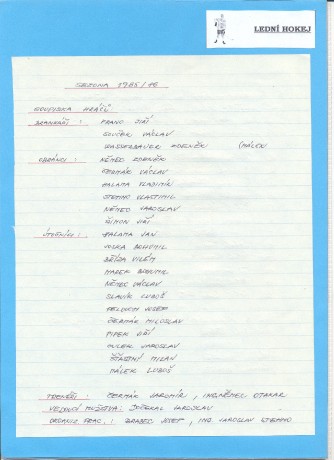 LEDNÍ HOKEJ
SEZONA 1985/86
SOUPISKA HRÁČŮ
BRANKÁŘI : FRANC JIŘÍ
SOUČEK VÁCLAV
WASSERBAUER ZDENĚK (MÁLEK
OBRÁNCI : NĚMEC ZDENĚK
ČERMÁK VÁCLAV
HALAMA VLADIMÍR
STEHNO VLASTIMIL
NĚMEC JAROSLAV
ŠIMON JIŘÍ
ÚTOČNÍCI : HALAMA JAN
BOHUMIL
VILÉM
MAREK BOHUMIL
NĚMEC VÁCLAV
SLAVÍK LUBOŠ
JOSEF
ČERMÁK MILOSLAV
PIPEK JIŘÍ
JAROSLAV
ŠŤASTNÝ MILAN
MÁLEK LUBOŠ
TRENÉŘI : ČERMÁK JAROMÍR , ING. NĚMEC OTAKAR
VEDOUCÍ MUŽSTVA : DOČEKAL JAROSLAV
ORGANIZ. PRAC. : JOSEF , ING. JAROSLAV STEHNO